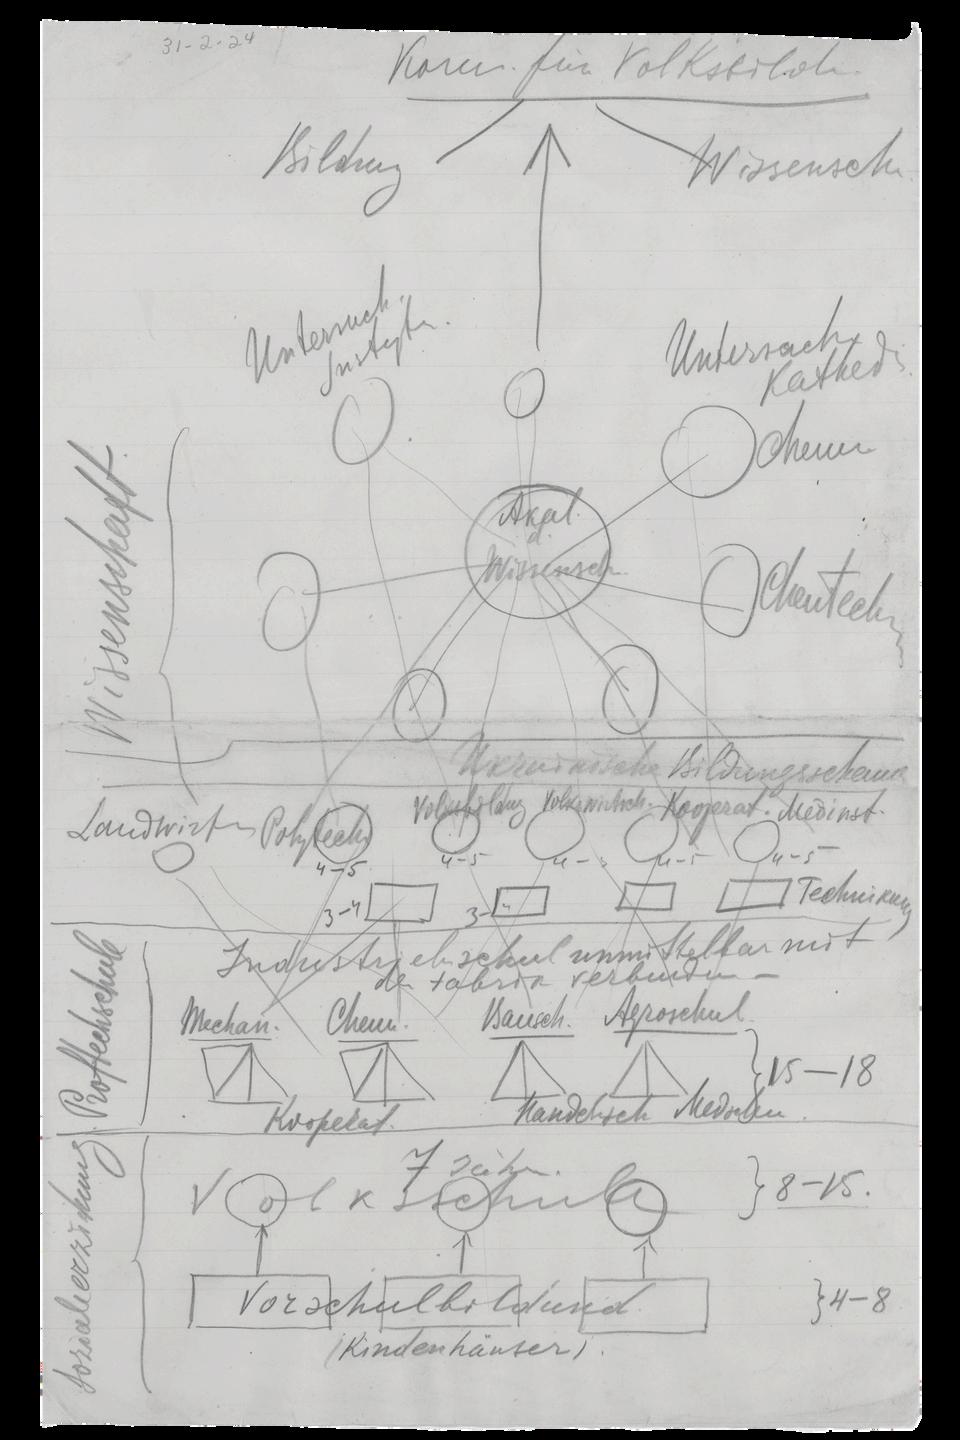 31-2-24
Komm. für Volksbild.
Bildung
Wissensch.
Untersuch.
Instytu.
Untersuch.
Kathed.
Chem
Akad.
d.
Wissensch.
Chemtech
Wissenschaft.
Ukrainische Bildungsschema
Landwirt Polytech Volksbildung Volkswirtsch. Kooperat. Medinst.
4-5 4-5 4-5 4-5
3-4 3-4 Technikum
Industriehschul unmittelbar mit
der Fabrik verbunden —
Proftechschule
Mechan. Chem. Bausch. Agroschul.
15-18
Kooperat. Handelsch Medschu.
Sozialerziehung
7 jähr.
Volksschule
8-15.
Vorschulbildund
4-8
(Kindenhäuser).